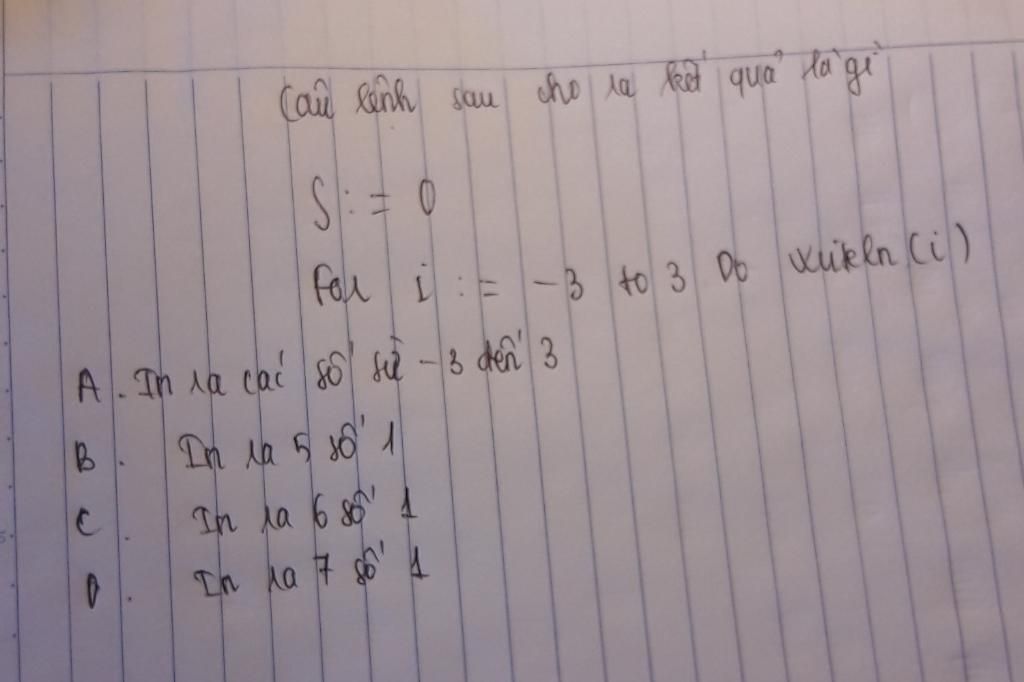 Câu lệnh sau cho ra kết quả là gì
S := 0
For i := -3 to 3 Do writeln (i)
A. In ra các số từ -3 đến 3
B. In ra 5 số 1
C. In ra 6 số 1
D. In ra 7 số 1